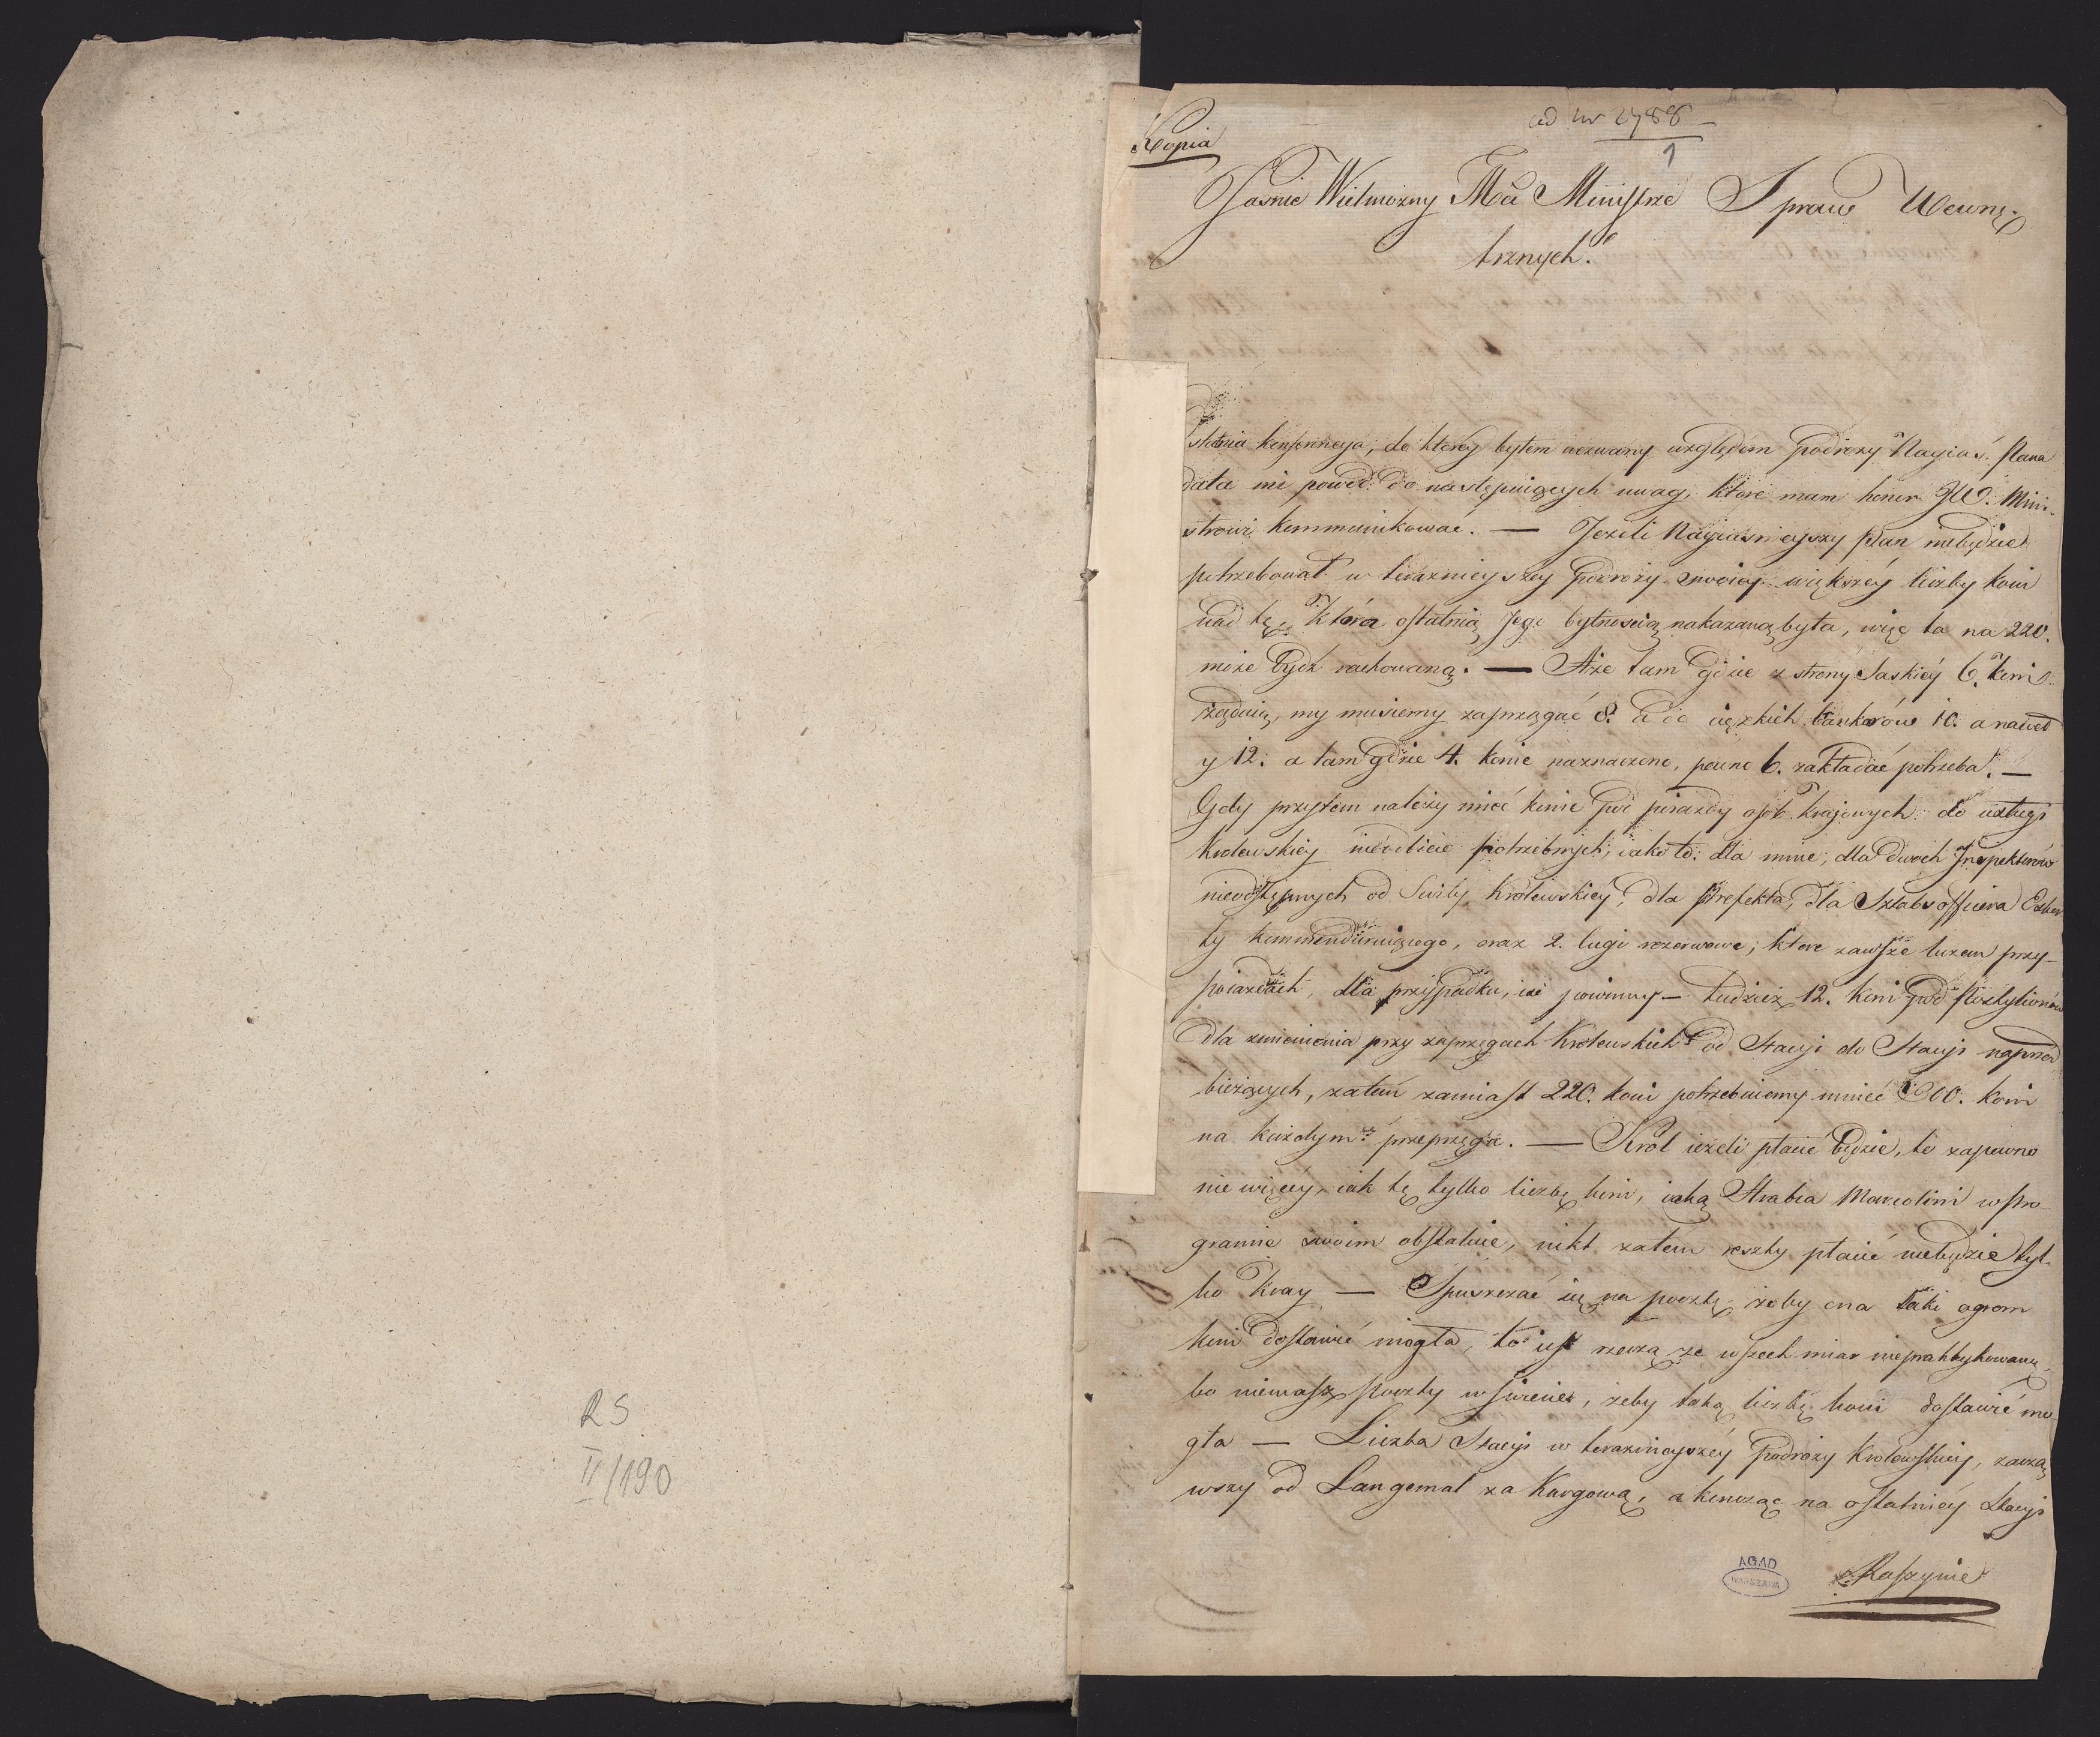 RS
II/190
ad nr 2788
1
Kopia
Jasnie Wielmożny Mci Ministrze Spraw Wewnę-
trznych.
statnia konferencya, do ktorey byłem wezwany względem Podrozy Nayiaś. Pana
dała mi powod do następuiących uwag, ktore mam honor JW. Mini-
strowi kommunikować. — Jezeli Nayiasnieyszy Pan niebędzie
potrzebował w teraznieyszey Podroży swoiey większey liczby koni
nad tę, która ostatnią Jego bytnoscią nakazaną była, więc ta na 220.
może bydź rachowaną. — Atże tam gdzie z strony Saskiéy 6. koni
żądaią, my musiemy zaprzągać 8. a do cięzkich bankarów 10. a nawed
y 12. a tam gdzie 4. konie naznaczono, pewno 6. zakładać potrzeba. —
Gdy przytem należy mieć konie pod poiazdy osob krajowych do usługi
Krolewskiey nieodbicie potrzebnych, iako to: dla mnie, dla dwoch Inspektorów
nieodstępnych od Suity Królewskiey, dla Prefekta, dla Sztabsofficera Eskor
ty kommenderuiącego, oraz 2. cugi rezerwowe, ktore zawsze luzem przy
poiazdach, dla przypadku, iść powinny — tudzież 12. koni pod Postylionów
dla zmienienia przy zaprzęgach Krolewskich od Stacyi do Stacyi naprzód
bieżących, zatem zamiast 220. koni potrzebuiemy mnieć 300. koni
na każdym przeprzęgu. — Król ieżeli płacić będzie, to zapewno
nie więcéy, iak tę tylko liczbę koni, iaką Hrabia Marcolini w pro-
gramie swoim obstaluie, nikt zatem reszty płacić niebędzie tyl-
ko Kray — Spuszczać się na pocztę, żeby ona taki ogrom
koni dostawić mogła, to iest rzeczą ze wszech miar nieprahtykowaną,
bo niemasz Poczty w swiecie, żeby taką liczbę koni dostawić mo-
gła — Liczba Stacyi w teraznieyszéy Podroży Krolewskiey, zaczą
wszy od Langemal za Kargową, a kończąc na ostatniéy Stacyi
Raszynie
AGAD
WARSZAWA